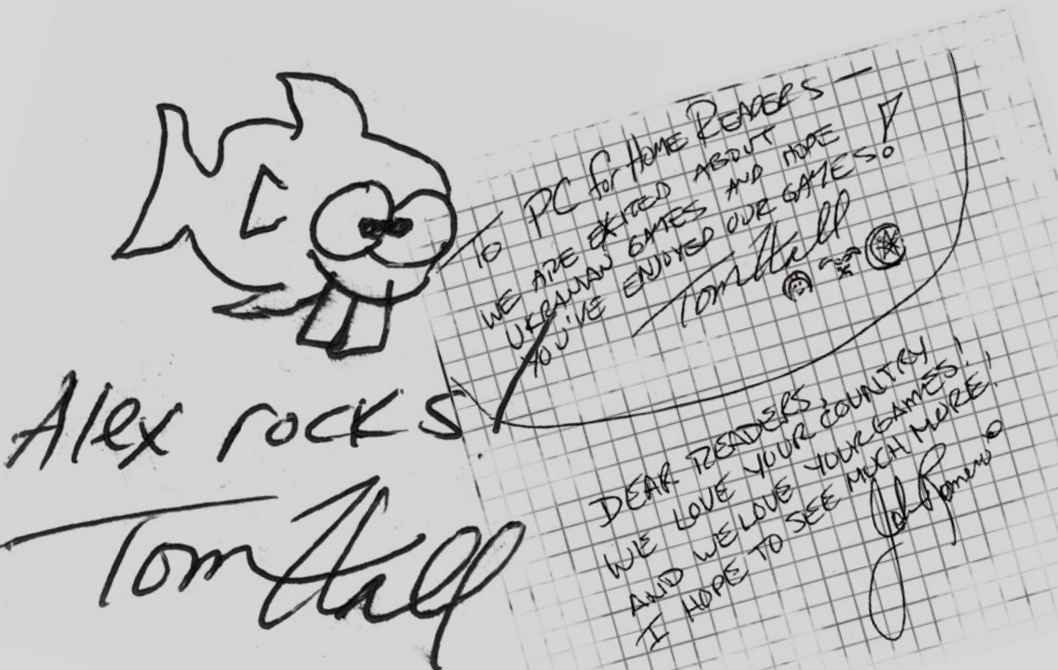 Alex rocks!
Tom Hall
TO PC for HOME READERS —
WE ARE EXITED ABOUT
UKRANIAN GAMES AND HOPE
YOU'VE ENJOYED OUR GAMES!
Tom Hall
DEAR READERS,
WE LOVE YOUR COUNTRY
AND WE LOVE YOUR GAMES!
I HOPE TO SEE MUCH MORE!
John Romero